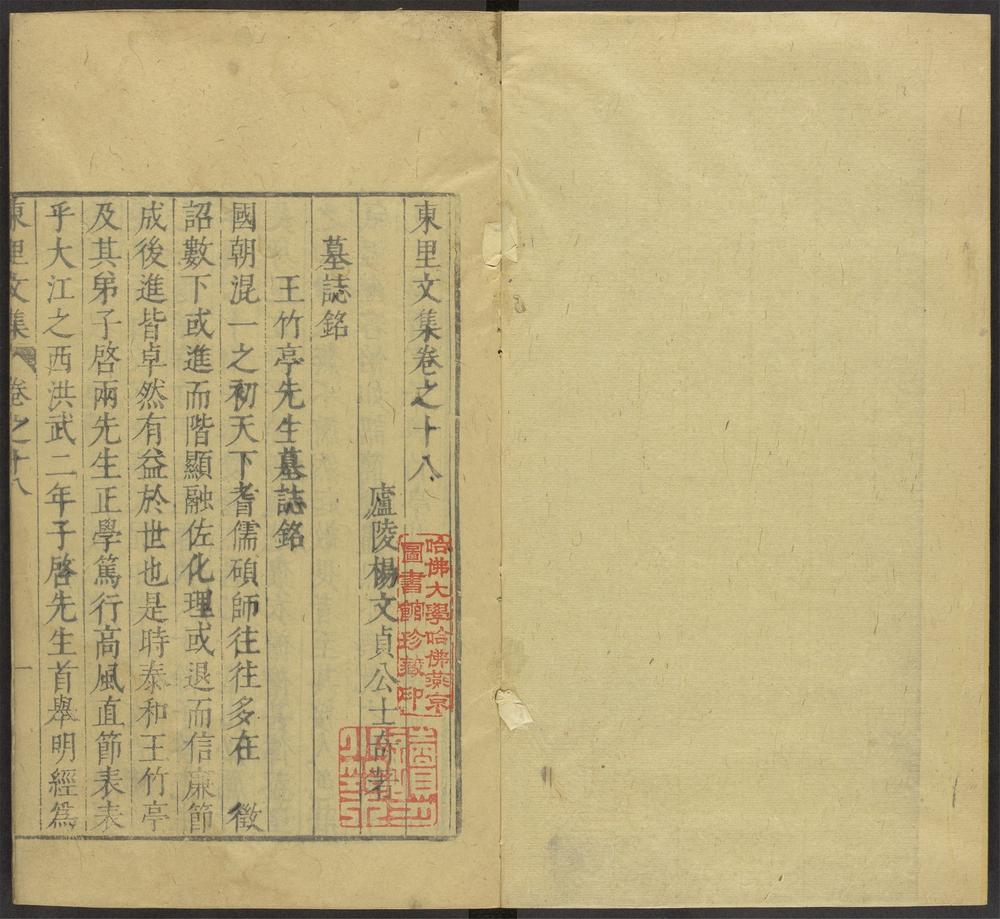 東里文集卷之十八
廬陵楊文貞公士奇著
墓誌銘
王竹亭先生墓誌銘
國朝混一之初天下耆儒碩師往往多在 徵
詔數下或進而階顯融佐化理或退而信廉節
成後進皆卓然有益於世也是時泰和王竹亭
及其弟子啓兩先生正學篤行高風直節表表
乎大江之西洪武二年子啓先生首舉明經爲
東里文集 卷之十八 一
哈佛大學哈佛燕京
圖書館珍藏印